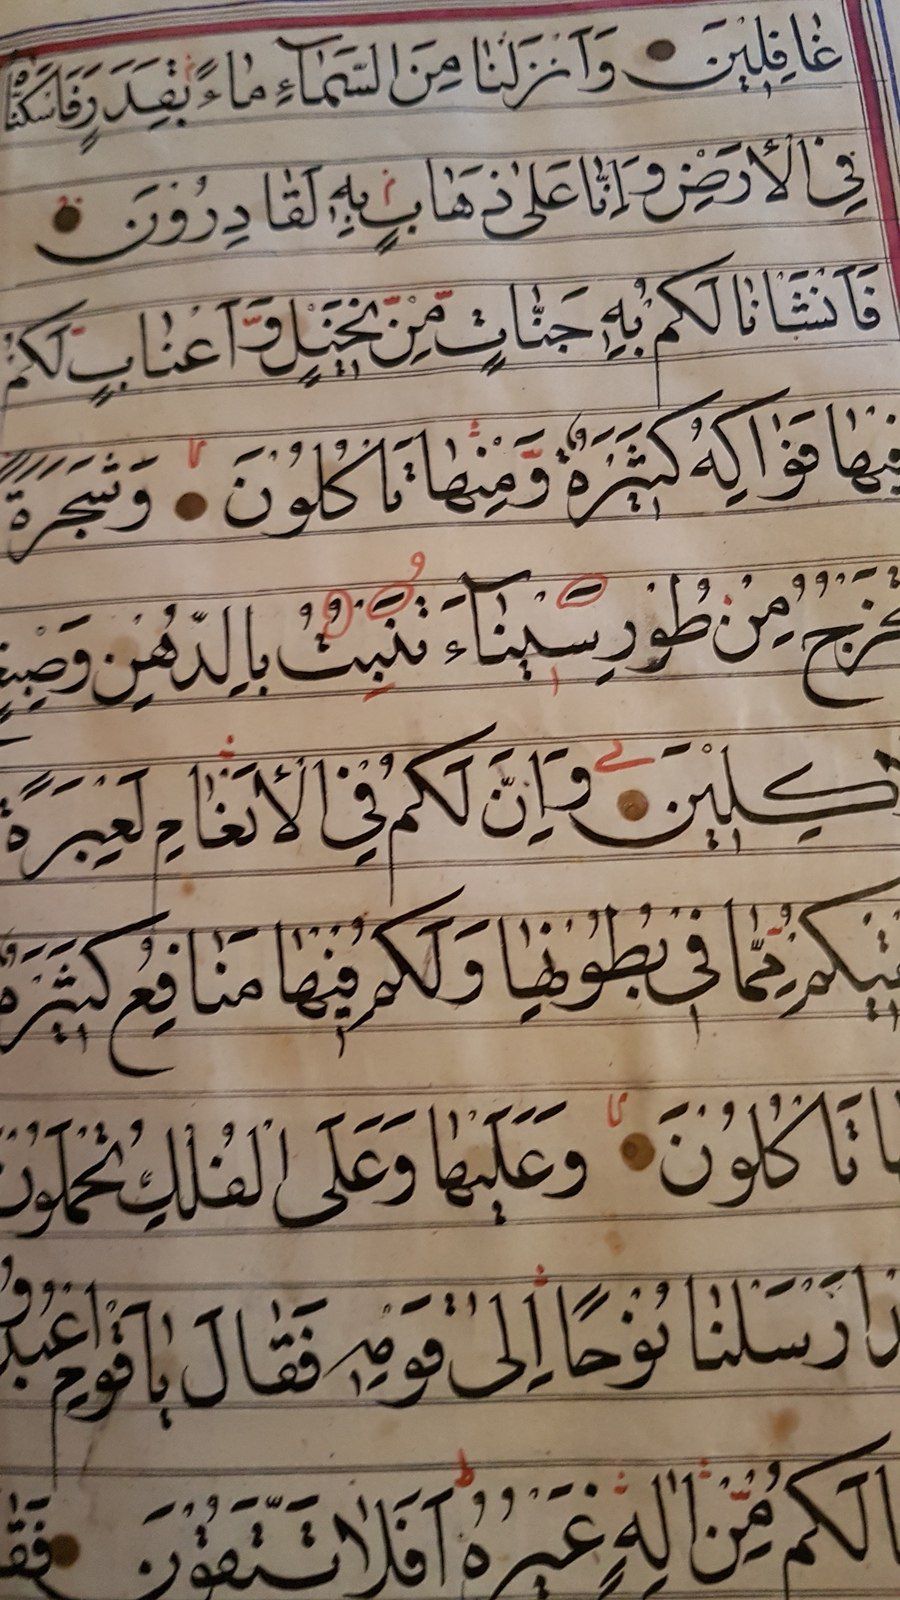 غَافِلِيْنَ وَاَنْزَلْنَا مِنَ السَّمَآءِ مَاءً بِقَدَرٍ فَاَسْكَنَّا
فِي الْاَرْضِ وَاِنَّا عَلٰى ذَهَابٍ بِهٖ لَقَادِرُوْنَ
فَاَنْشَاْنَا لَكُمْ بِهٖ جَنَّاتٍ مِّنْ نَّخِيْلٍ وَّاَعْنَابٍ لَكُمْ
فِيْهَا فَوَاكِهُ كَثِيْرَةٌ وَّمِنْهَا تَاْكُلُوْنَ وَشَجَرَةً
تَخْرُجُ مِنْ طُوْرِ سَيْنَآءَ تَنْبُتُ بِالدُّهْنِ وَصِبْغٍ
كِلِيْنَ وَاِنَّ لَكُمْ فِي الْاَنْعَامِ لَعِبْرَةً
قِيْكُمْ مِّمَّا فِيْ بُطُوْنِهَا وَلَكُمْ فِيْهَا مَنَافِعُ كَثِيْرَةٌ
هَا تَاْكُلُوْنَ وَعَلَيْهَا وَعَلَى الْفُلْكِ تُحْمَلُوْنَ
دْ اَرْسَلْنَا نُوْحًا اِلٰى قَوْمِهٖ فَقَالَ يَاقَوْمِ اعْبُدُوا
مَا لَكُمْ مِّنْ اِلٰهٍ غَيْرُهٗ اَفَلَا تَتَّقُوْنَ فَقَا